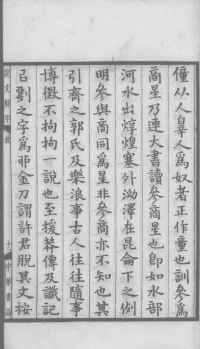 僮从人辠人爲奴者正作童也訓參爲
商星乃連大書讀參商星也卽如水部
河水出焞煌塞外泑澤在昆侖下之例
明參與商同爲星非參商亦不知也其
引齊之郭氏及樂浪事古人往往隨事
博徵不拘拘一說也至援莽傳及讖記
以劉之字爲卯金刀謂許君脫其文按